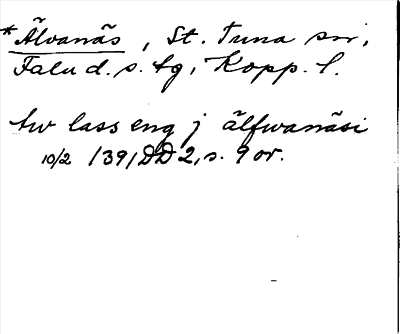 *Älvanäs, St. Tuna sn,
Falu d. s. tg, Kopp. l.
tw lass eng j älfwanäsi
10/2 1391 DD 2, s. 9 or.